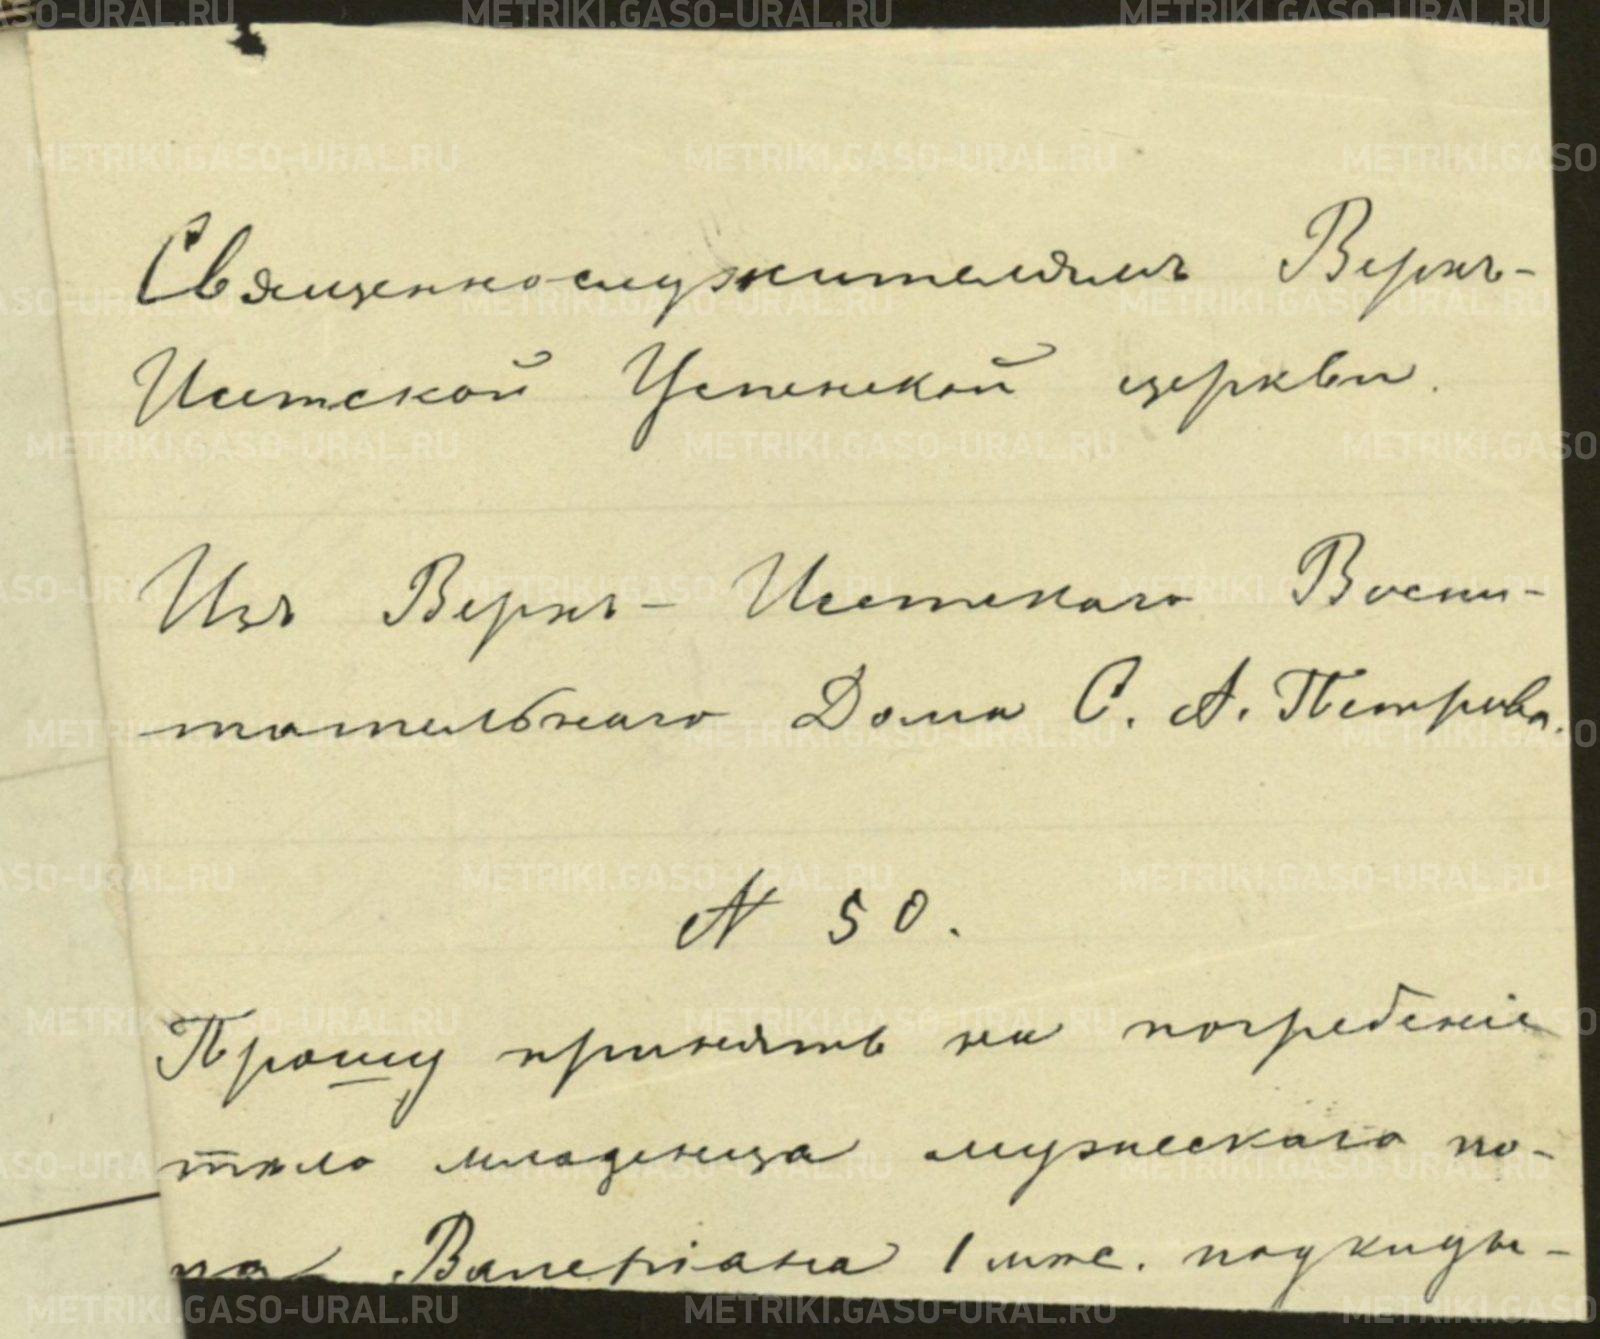 Священнослужителямъ Верхъ-
Исетской Успенской церкви.
Изъ Верхъ-Исетскаго Воспи-
тательнаго Дома С. А. Петрова.
N 50.
Прошу принять на погребеніе
тѣло младенца мужескаго по-
ла Валеріана 1 мѣс. подкиды-